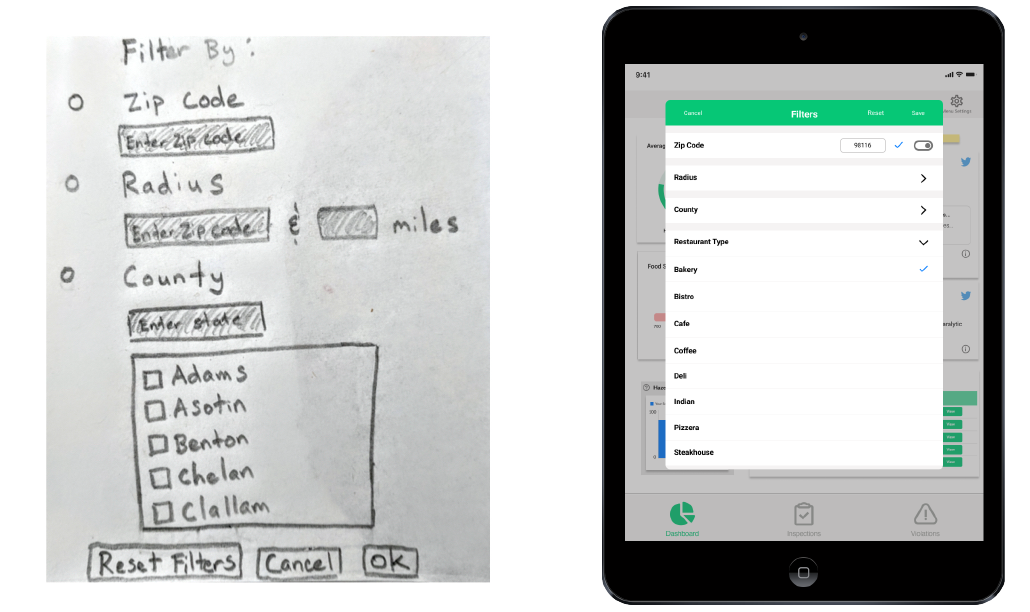 Filter By:
Zip Code
Enter Zip code
Radius
Enter Zip code & miles
County
Enter state
Adams
Asotin
Benton
Chelan
Clallam
Reset Filters Cancel OK
9:41
Menu Settings
Cancel Filters Reset Save
Averag
Zip Code 98116
Radius
County
Restaurant Type
Bakery
Food S
Bistro
Cafe
700
analytic
Coffee
Deli
Indian
100
Pizzera
0
Steakhouse
View
View
View
View
View
Dashboard Inspections Violations